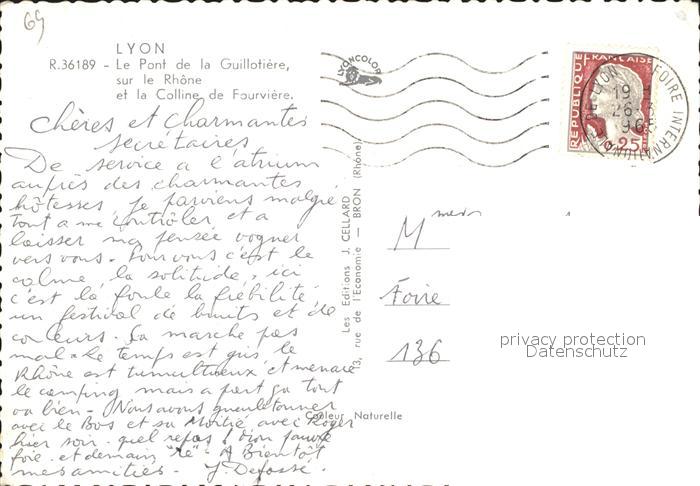 69
LYON
R.36189 - Le Pont de la Guillotière,
sur le Rhône
et la Colline de Fourvière.
LYONCOLOR
REPUBLIQUE FRANÇAISE
0,25
FOIRE INTERNATIONALE DE LYON
19
Chères et Charmantes
secrétaires
De service a l'atrium
auprès des charmantes
hôtesses, je parviens malgré
tout a me contrôler et a
laisser ma pensée voguer
vers vous. Pour vous c'est le
calme, la solitude, ici
c'est la foule la fiébilité,
un festival de bruits et de
couleurs. Ca marche pas
mal. Le temps est gris, le
Rhône est tumultueux et menace
le camping mais a part ça tout
va bien - Nous avons gueuletonner
avec le Bos et sa Moitié avec Roger
hier soir. quel repas ! mon pauvre
foie. et demain "Té" - A Bientôt
mes amitiés - J. Defosse.
Les Editions J. CELLARD
13, rue de l'Economie — BRON (Rhône)
Couleur Naturelle
Mmes
Foire
136
privacy protection
Datenschutz